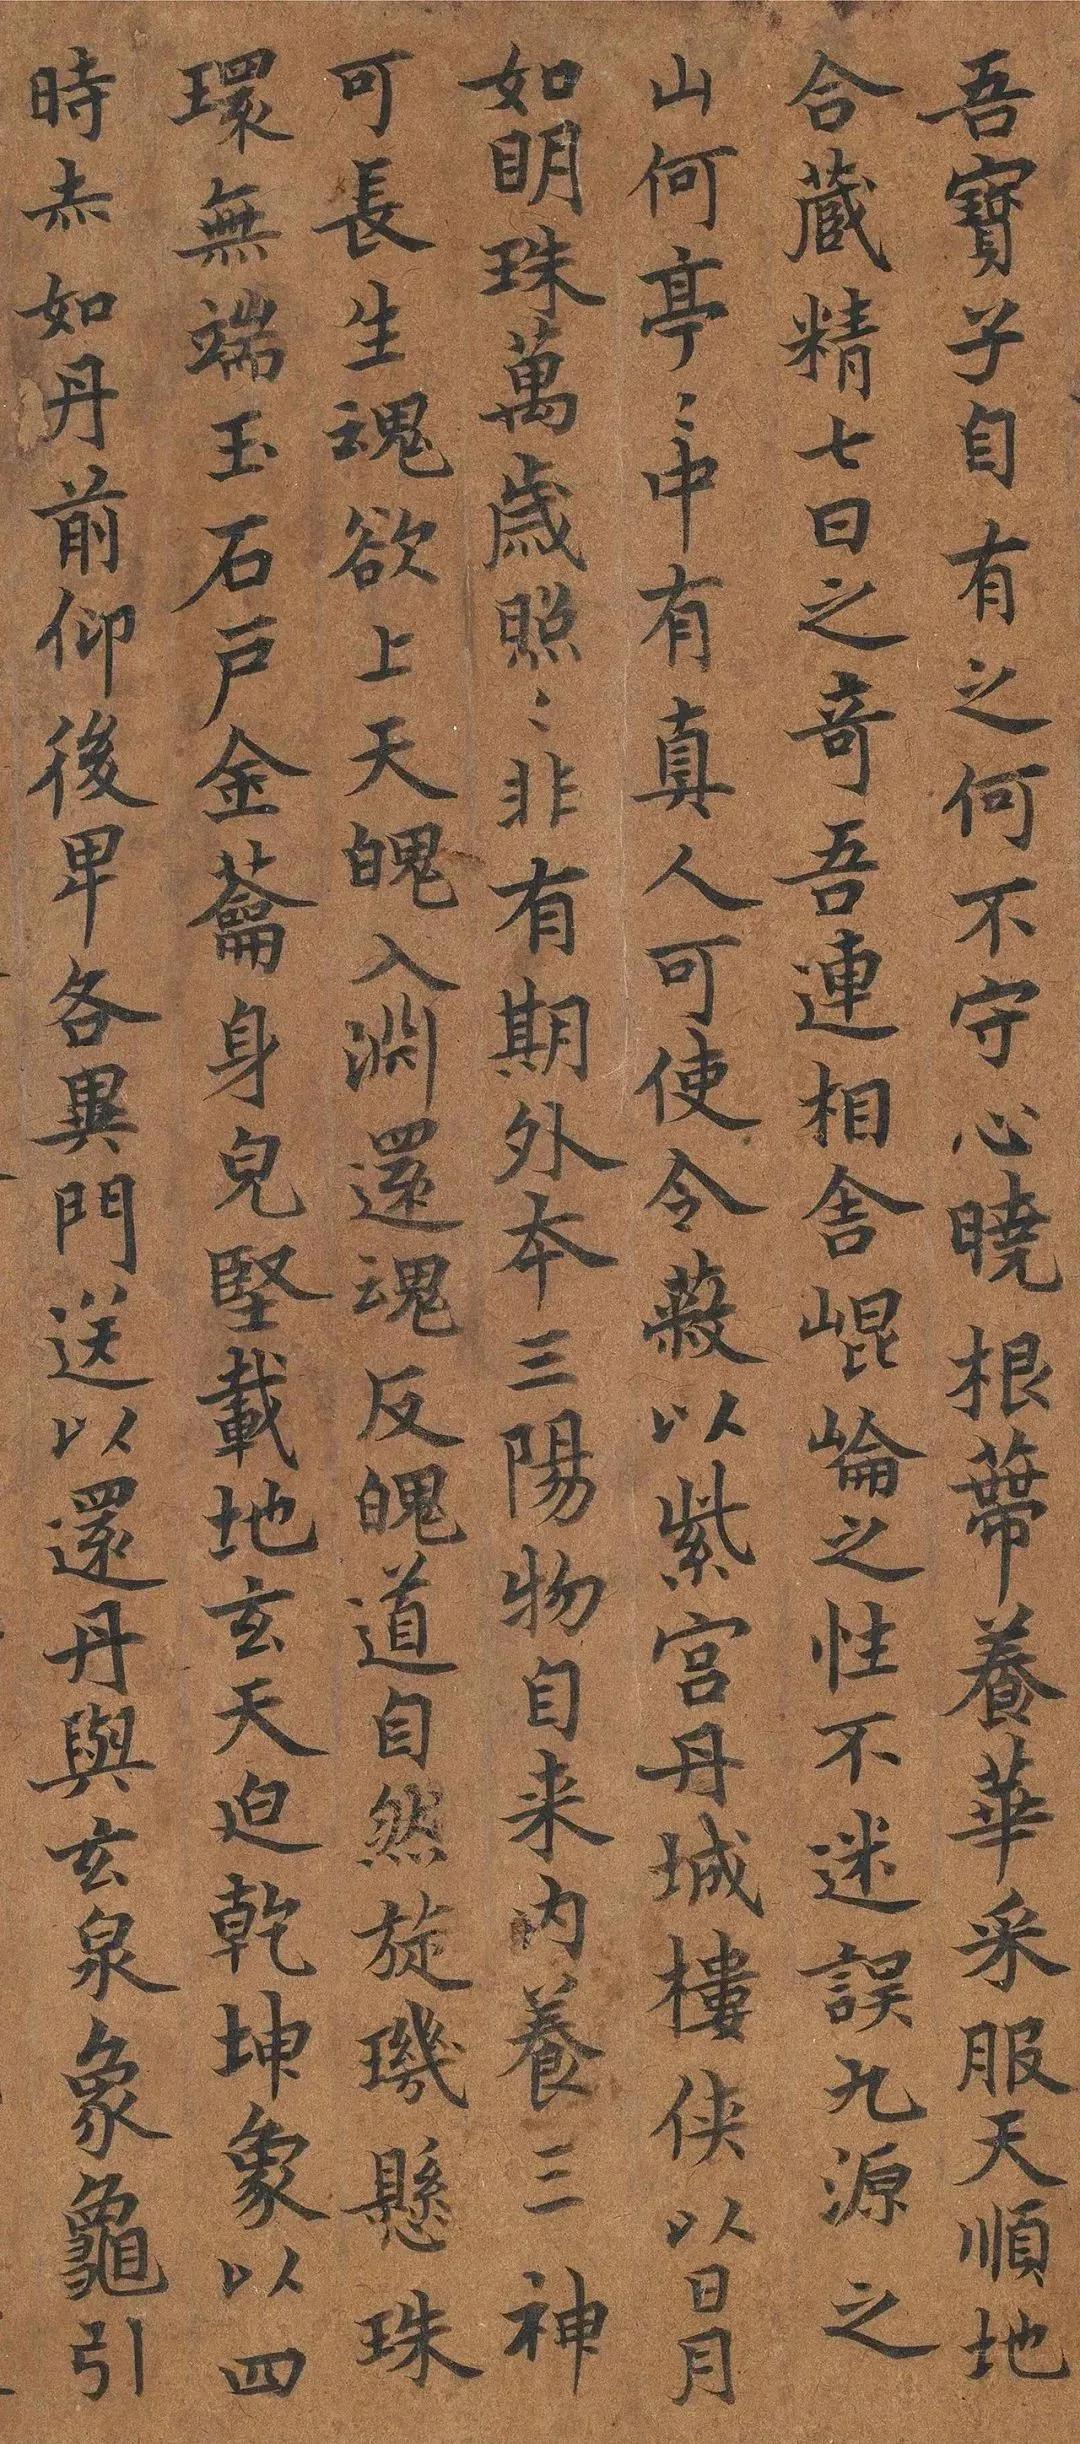 吾寶子自有之何不守心曉根蔕養華采服天順地
合蔵精七日之竒吾連相舎崐崘之性不迷誤九源之
山何亭〻中有真人可使令蔽以紫宫丹城樓侠以日月
如明珠萬歳照〻非有期外夲三陽物自来内養三神
可長生魂欲上天魄入渊還魂反魄道自然琁璣懸珠
環無端玉石戸金籥身皃堅載地玄天迫乾坤象以四
時赤如丹前仰後卑各異門送以還丹與玄泉象龜引